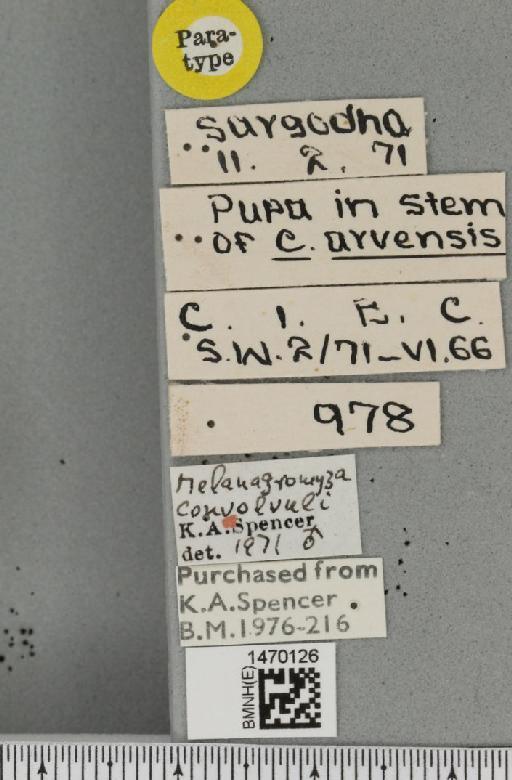 Para-
type
Sargodha
11. 2. 71
Pupa in stem
of C. arvensis
C. I. E. C.
S.W.2/71-VI.66
978
Melanagromyza
convolvuli
K.A.Spencer
det. 1971 ♂
Purchased from
K.A.Spencer
B.M.1976-216
BMNH(E)
1470126